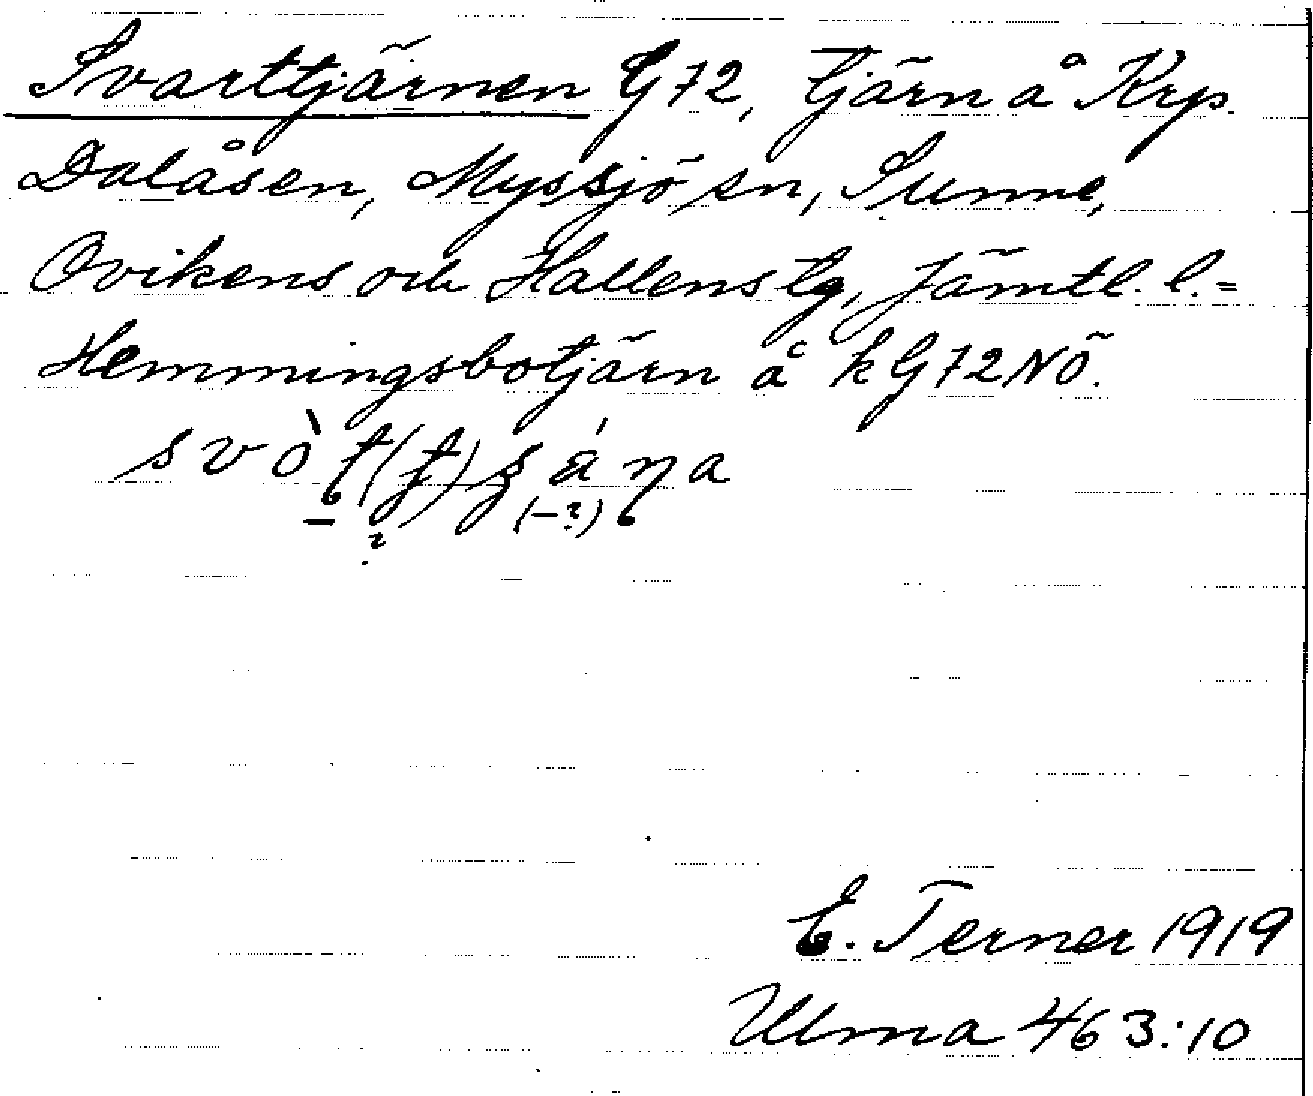 Svarttjärnen G72, tjärn å Krp.
Dalåsen, Myssjö sn, Sunne,
Ovikens och Hallens tg, Jämtl. l. =
Hemmingsbotjärn å k G72NÖ.
E. Terner 1919
Ulma 463:10